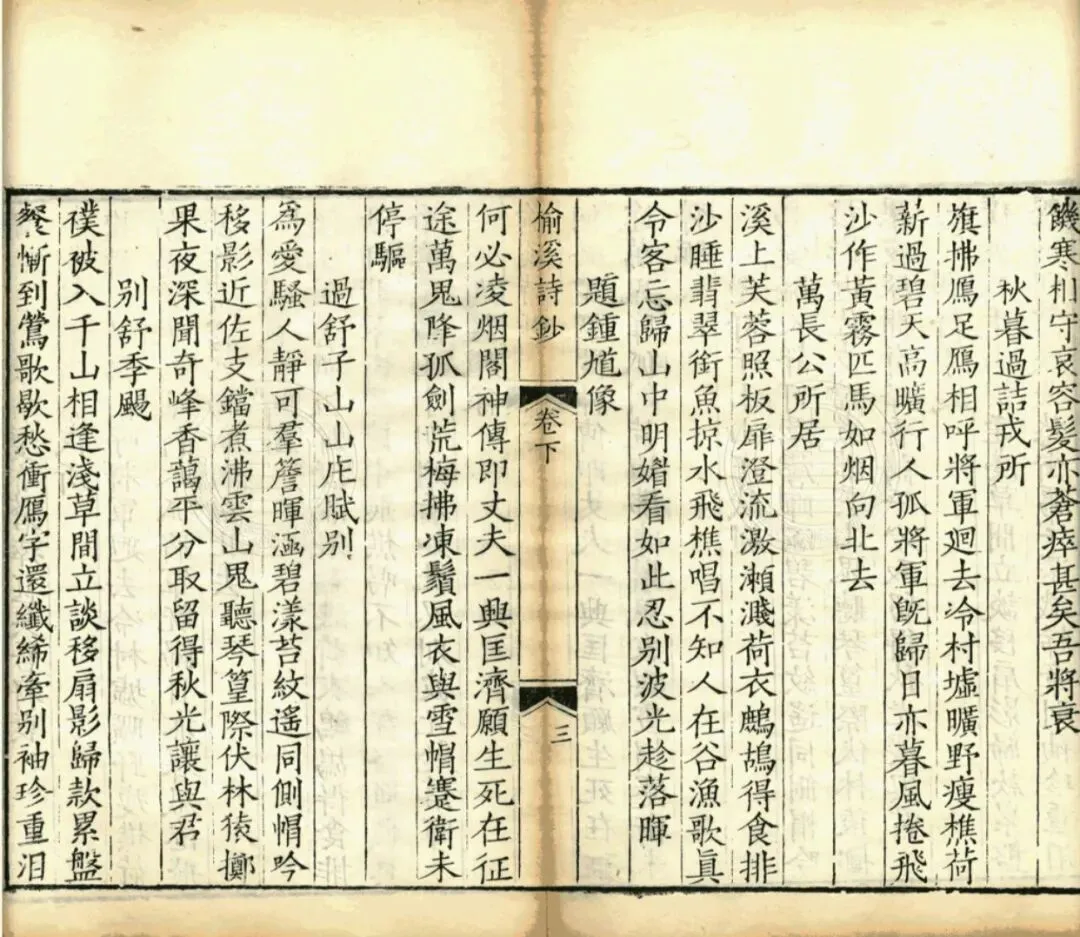 饑寒相守哀容髮亦蒼瘁甚矣吾將衰
秋暮過詰戎所
旗拂鴈足鴈相呼將軍廻去冷村墟曠野瘦樵荷
薪過碧天高曠行人孤將軍旣歸日亦暮風捲飛
沙作黃霧匹馬如烟向北去
萬長公所居
溪上芙蓉照板扉澄流激瀨濺荷衣鷓鴣得食排
沙睡翡翠銜魚掠水飛樵唱不知人在谷漁歌眞
令客忘歸山中明媚看如此忍別波光趁落暉
題鍾馗像
偷溪詩鈔
卷下
三
何必凌烟閣神傳即丈夫一興匡濟願生死在征
途萬鬼降孤劍荒梅拂凍鬚風衣與雪帽蹇衛未
停驅
過舒子山山庄賦别
為愛騷人靜可羣簷暉涵碧漾苔紋遙同側帽吟
移影近佐支鐺煮沸雲山鬼聽琴篁際伏林猿擲
果夜深聞奇峰香藹平分取留得秋光讓與君
别舒季颺
襆被入千山相逢淺草間立談移扇影歸款累盤
餐慚到鶯歌歇愁衝鴈字還纖絺牽别袖珍重泪